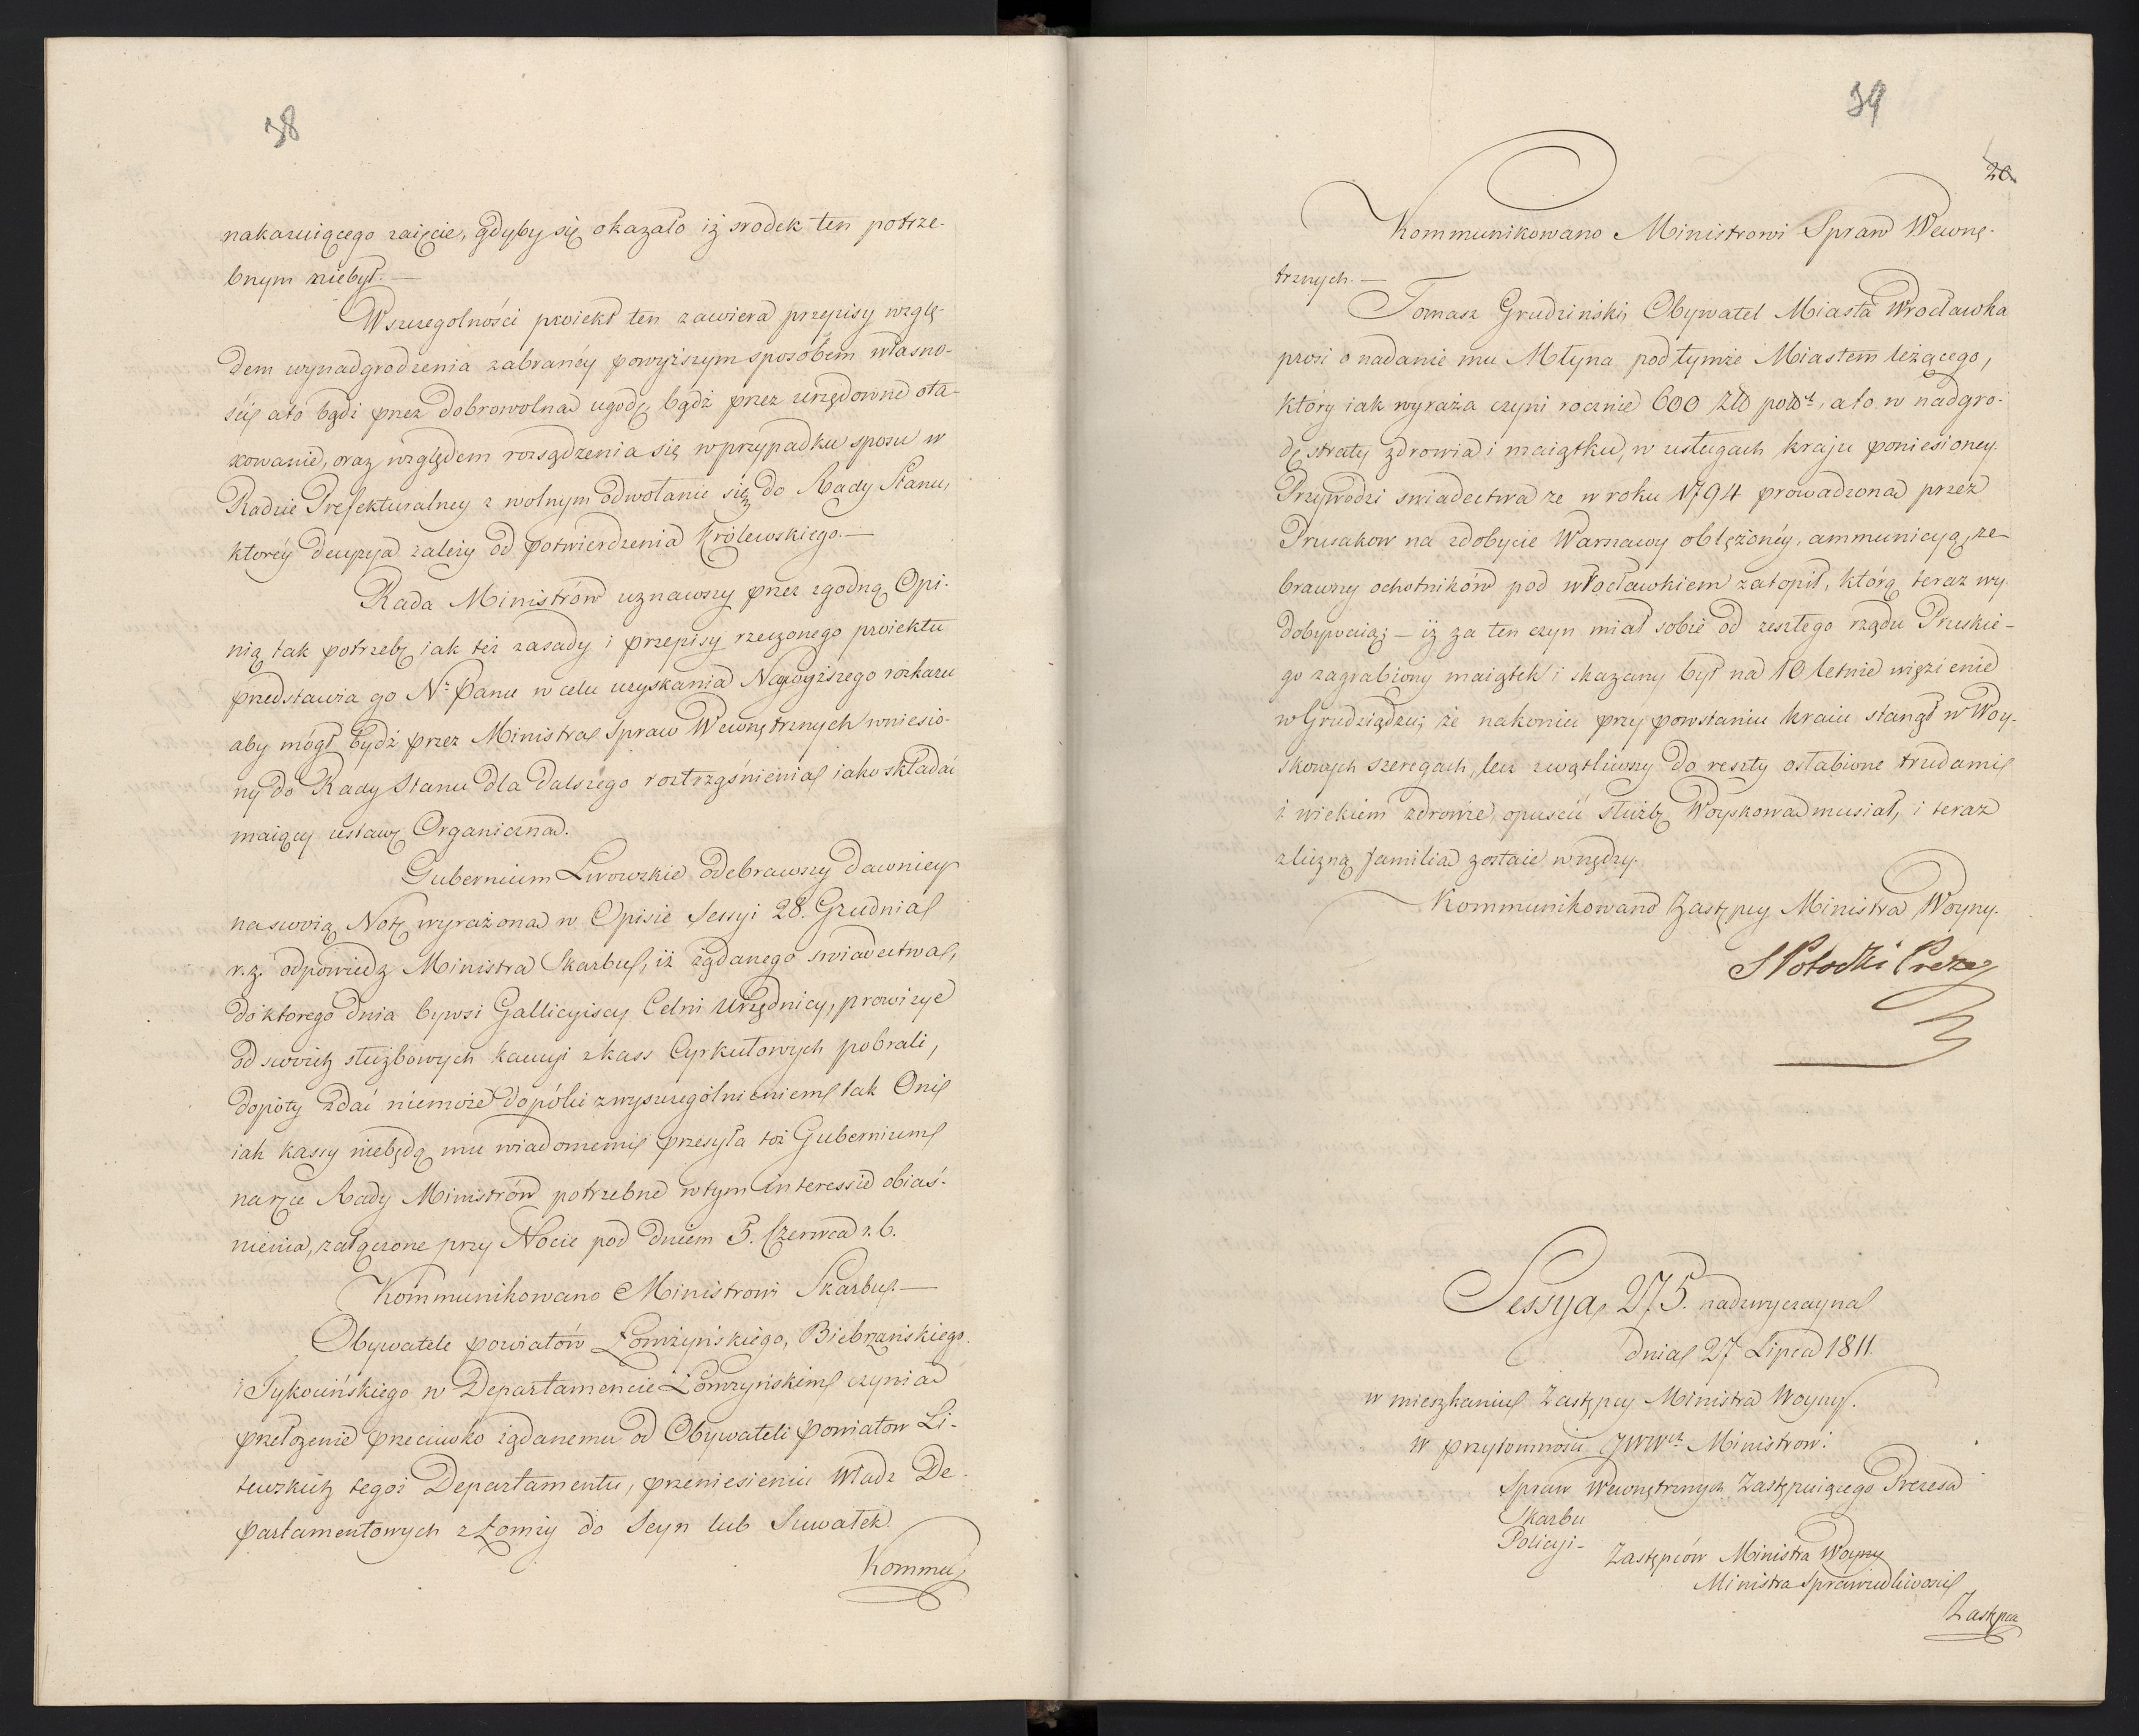 38
nakazuiącego zaięcie, gdyby się okazało iż srodek ten potrze-
bnym niebył. —
Wszczegolności proiekt ten zawiera przepisy wzglę-
dem wynadgrodzenia zabranéy powyższym sposobem własno-
ści ato bądź przez dobrowolna ugodę, bądź przez urzędowne ota-
xowanie, oraz względem rozsądzenia się w przypadku sporu w
Radzie Prefekturalney z wolnym odwołanie się do Rady Stanu,
któréy decyzya zależy od potwierdzenia Królewskiego. —
Rada Ministrów uznawszy przez zgodną Opi-
nią tak potrzebę iak też zasady i przepisy rzeczonego proiektu
przedstawia go Nr. Panu w celu uzyskania Naywyższego rozkazu
aby mógł bydź przez Ministra Spraw Wewnętrznych wniesio-
ny do Rady Stanu dla dalszego roztrząśnienia iako składać
maiący ustawę Organiczna.
Gubernium Lwowskie odebrawszy dawniey
na swoią Notę wyrażona w Opisie Sessyi 28. Grudnia
r. z. odpowiedz Ministra Skarbu, iż żądanego swiadectwa,
do ktorego dnia bywsi Gallicyiscy Celni Urzędnicy, prowizye
od swoich służbowych kaucyi z kass Cyrkułowych pobrali,
dopóty zdać niemoże dopóki z wyszczególnieniem tak Oni
iak kassy niebędą mu wiadomemi przesyła toż Gubernium
na ręce Rady Ministrów potrzebne w tym interessie obiaś-
nienia, załączone przy Nocie pod dniem 5. Czerwca r. b.
Kommunikowano Ministrowi Skarbu. —
Obywatele powiatów Łomżyńskiego, Biebrzańskiego
i Tykocińskiego w Departamencie Łomżyńskim czynia
przełożenie przeciwko żądanemu od Obywateli Powiatow Li-
tewskich tegoż Departamentu, przeniesieniu Władz De-
partamentowych z Łomży do Seyn lub Suwałek.
Kommu
39
20
Kommunikowano Ministrowi Spraw Wewnę-
trznych. —
Tomasz Grudziński, Obywatel Miasta Wrocławka
prosi o nadanie mu Młyna pod tymże Miastem leżącego,
który iak wyraża czyni rocznie 600 Złł, ato w nadgro-
dę straty zdrowia i maiątku, w usługach kraju poniesioney.
Przywodzi swiadectwa ze w roku 1794 prowadzona przez
Prusakow na zdobycie Warszawy oblężonéy, ammunicyą, ze-
brawszy ochotników pod Włocławkiem zatopił, którą teraz wy-
dobywaią; — iż za ten czyn miał sobie od zeszłego rządu Pruskie-
go zagrabiony maiątek i skazany był na 10 letnie więzienie
w Grudziądzu; że nakoniec przy powstaniu kraiu stanął w Woy-
skowych szeregach, lecz zwątliwszy do reszty osłabione trudami
i wiekiem zdrowie, opuscić służbę Woyskowa musiał, i teraz
z liczną familia zostaie w nędzy.
Kommunikowano Zastępcy Ministra Woyny.
S Potocki Prezes
Sessya 275. nadzwyczayna
dnia 27 Lipca 1811.
w mieszkaniu Zastępcy Ministra Woyny.
w przytomności JWWch Ministrow:
Spraw Wewnętrznych Zastępuiącego Prezesa
Skarbu
Policyi -
Zastępców Ministra Woyny
Ministra Sprawiedliwosci
Zastępca